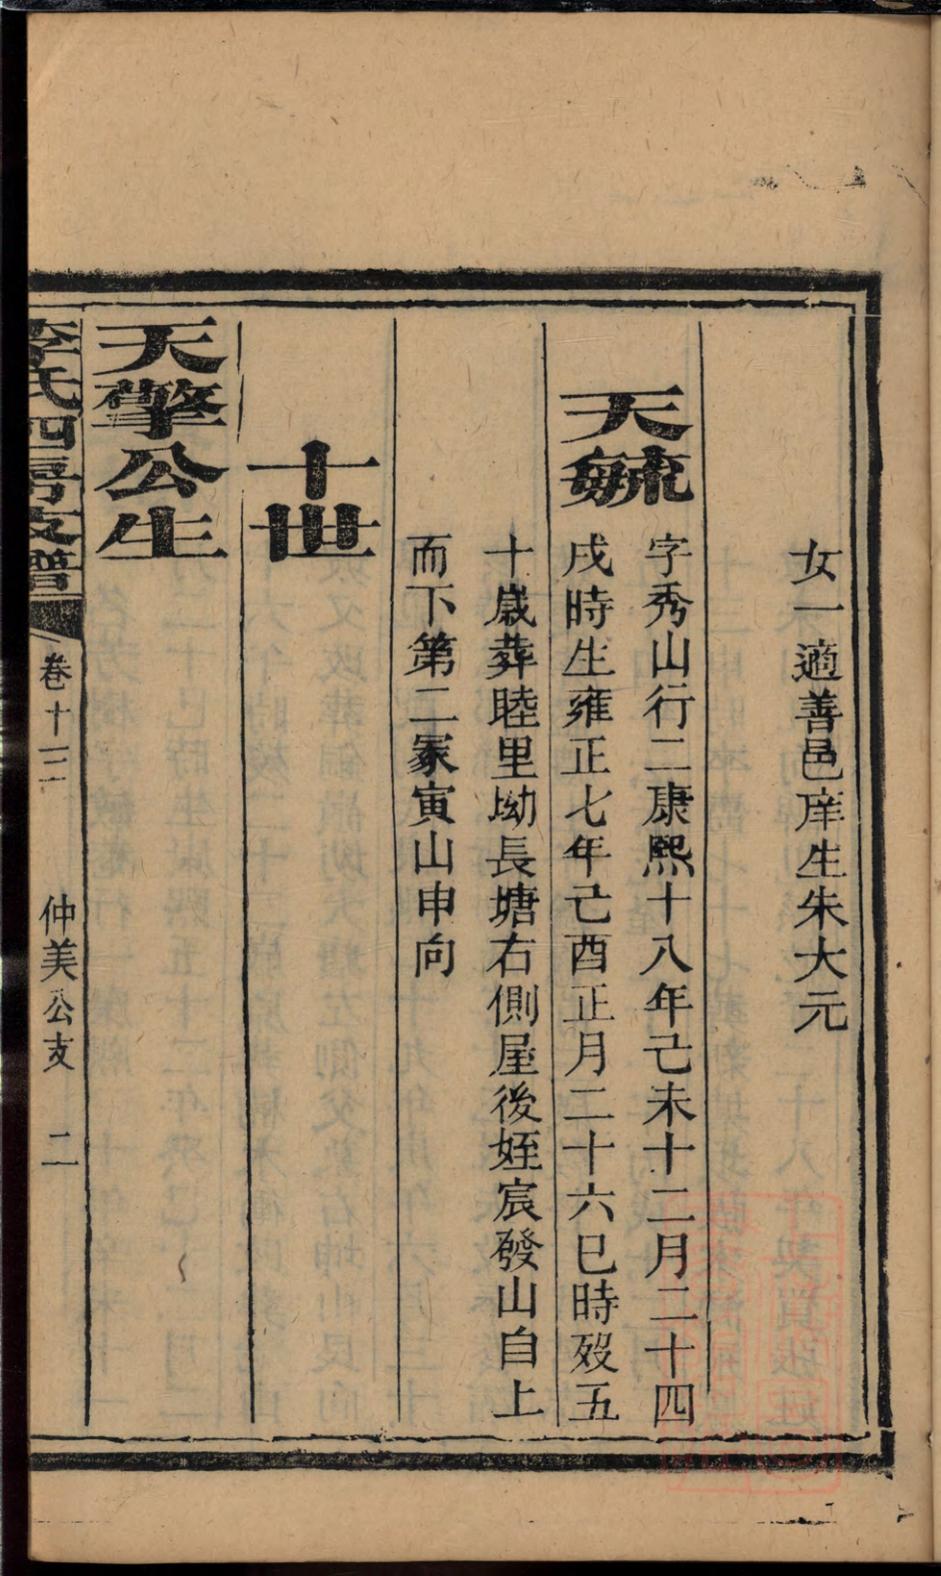 女一適善邑庠生朱大元
天毓
字秀山行二康熙十八年己未十二月二十四
戌時生雍正七年己酉正月二十六巳時歿五
十歲葬睦里坳長塘右側屋後姪宸發山自上
而下第二冢寅山申向
十世
天擎公生
李氏四房支譜 卷十三 仲美公支 二